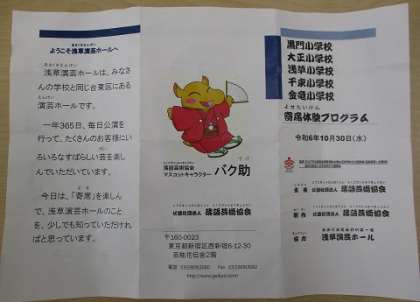 ようこそ浅草演芸ホールへ
浅草演芸ホールは、みなさ
んの学校と同じ台東区にある
演芸ホールです。
一年365日、毎日公演を
行って、たくさんのお客様にい
ろいろなすばらしい芸を楽し
んでいただいています。
今日は、「寄席」を楽しん
で、浅草演芸ホールのこと
を、少しでも知っていただけれ
ばと思っています。
落語芸術協会
マスコットキャラクター バク助
公益社団法人 落語芸術協会
〒160-0023
東京都新宿区西新宿6-12-30
芸能花伝舎2階
黒門小学校
大正小学校
浅草小学校
千束小学校
金竜小学校
よせたいけん
寄席体験プログラム
令和6年10月30日(水)
主催 公益社団法人 落語芸術協会
制作 公益社団法人 落語芸術協会
協力 浅草演芸ホール